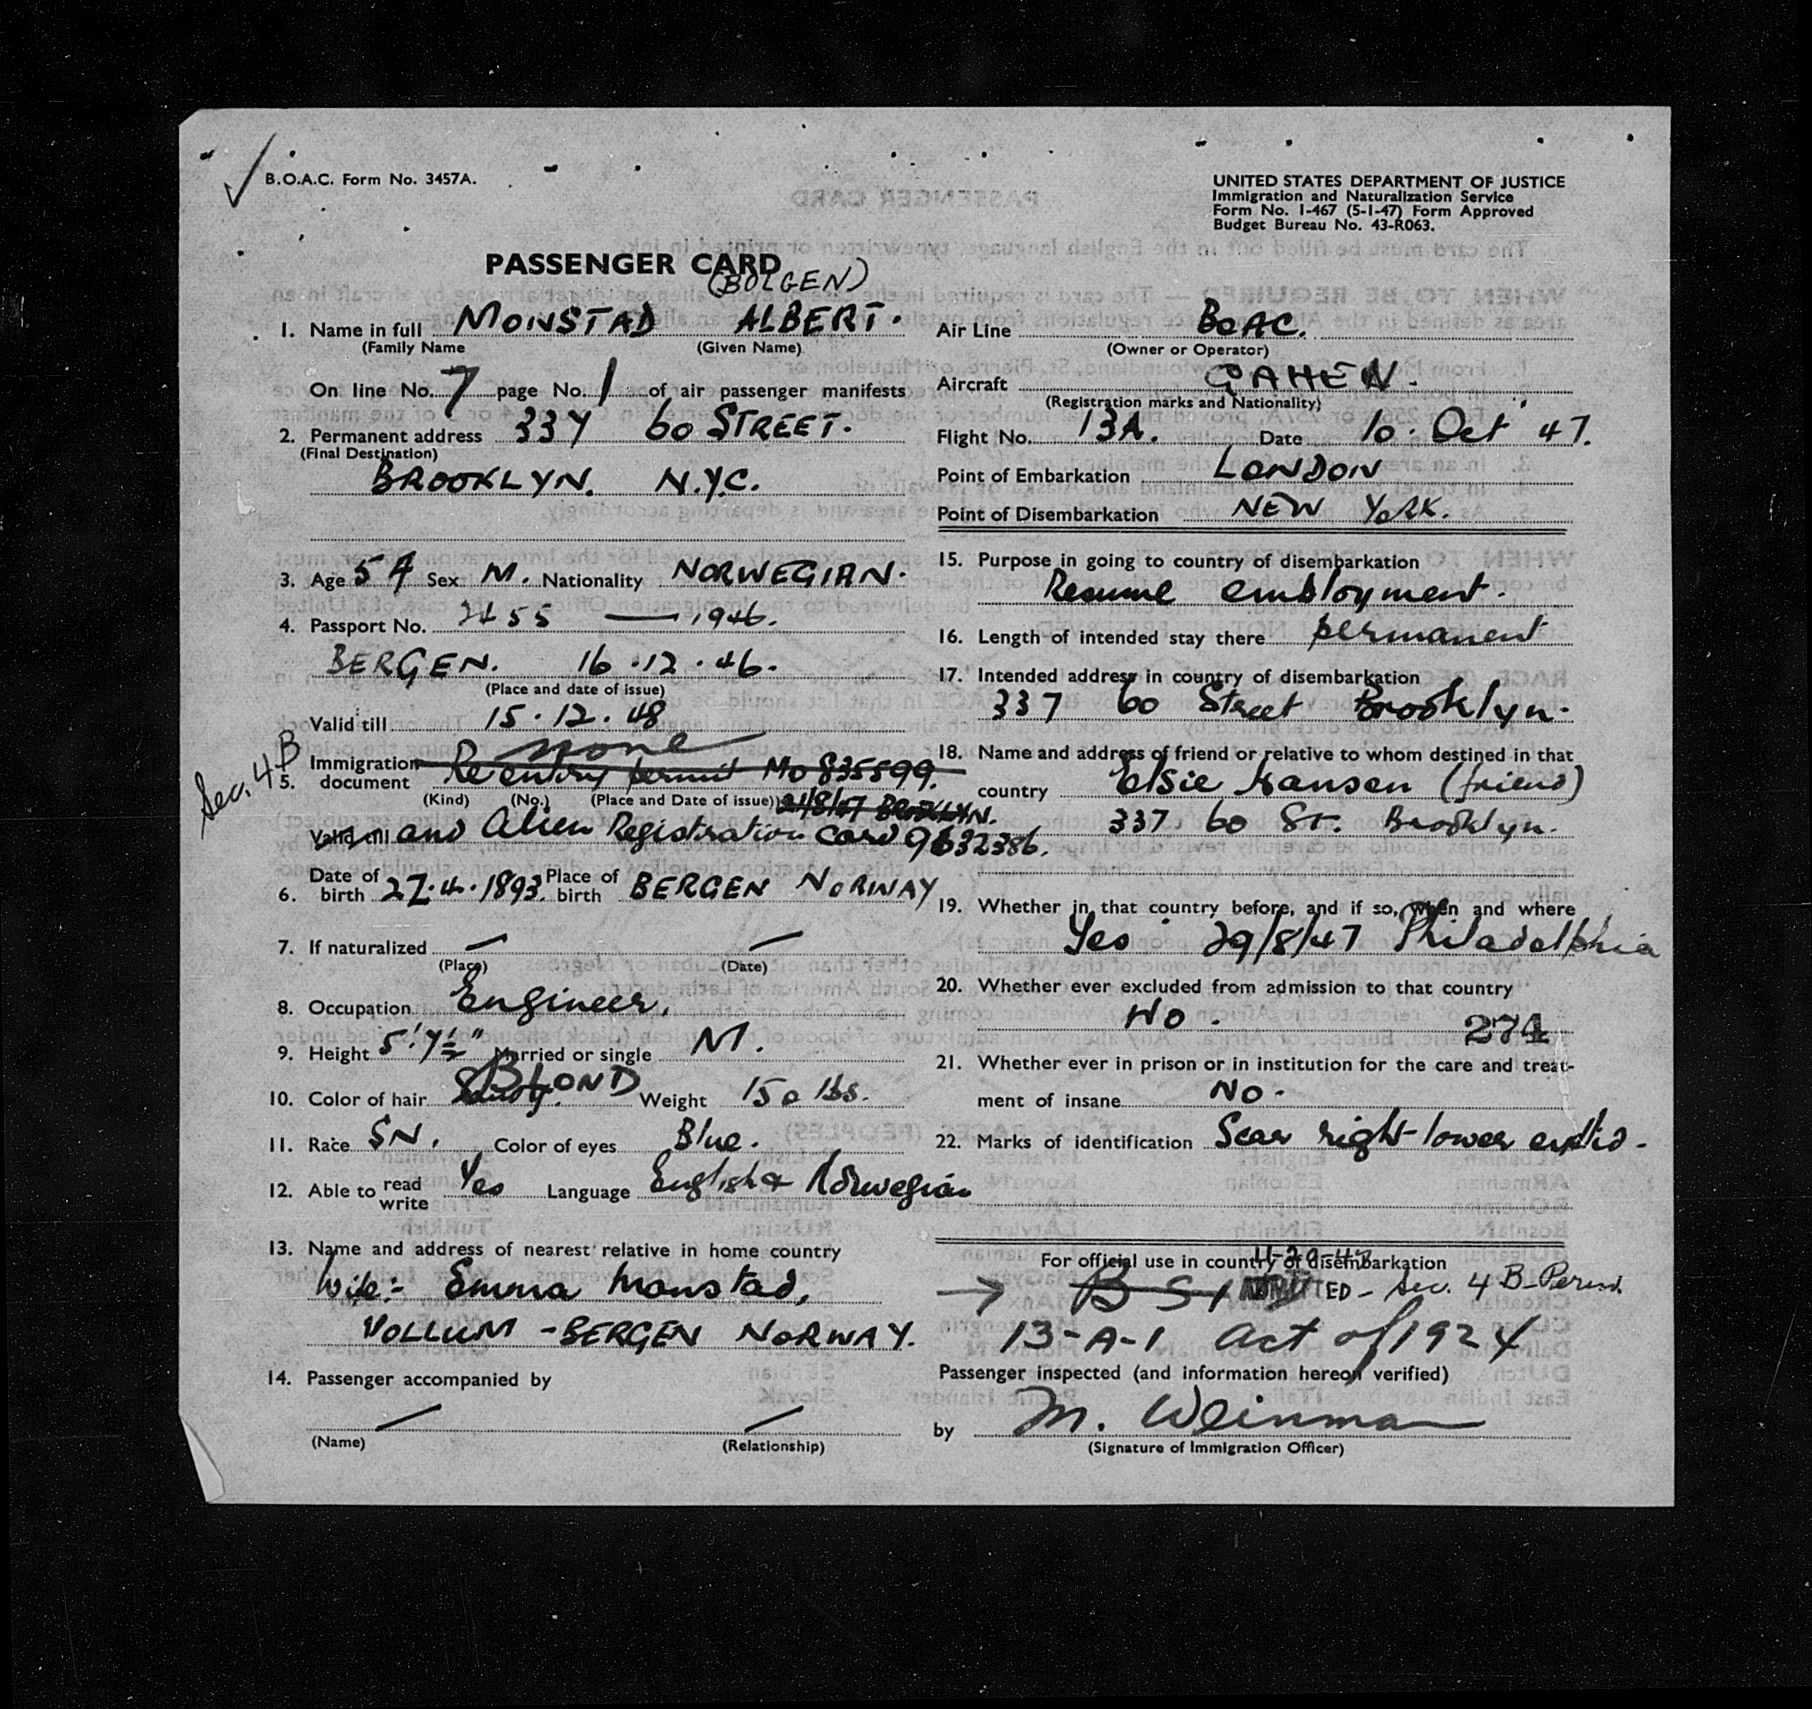 B.O.A.C. Form No. 3457A.
UNITED STATES DEPARTMENT OF JUSTICE
Immigration and Naturalization Service
Form No. I-467 (5-1-47) Form Approved
Budget Bureau No. 43-R063.
PASSENGER CARD
(BOLGEN)
1. Name in full MONSTAD ALBERT.
(Family Name (Given Name)
On line No. 7 page No. 1 of air passenger manifests
2. Permanent address 337 60 STREET.
(Final Destination)
BROOKLYN. N.Y.C.
3. Age 54 Sex M. Nationality NORWEGIAN.
4. Passport No. 2455 — 1946.
BERGEN. 16.12.46.
(Place and date of issue)
Valid till 15.12.48
none
Sec. 4B
5. Immigration document Re entry permit No 835599.
(Kind) (No.) (Place and Date of issue) 21/8/47 BROOKLYN.
Valid till and Alien Registration Card 9632386.
6. Date of birth 27.4.1893. Place of birth BERGEN NORWAY
7. If naturalized — —
(Place) (Date)
8. Occupation Engineer.
9. Height 5' 7½" Married or single M.
10. Color of hair Sandy. BLOND Weight 150 lbs.
11. Race SN. Color of eyes Blue.
12. Able to read write Yes Language English & Norwegian
13. Name and address of nearest relative in home country
Wife:- Emma Monstad,
VOLLUM - BERGEN NORWAY.
14. Passenger accompanied by
— —
(Name) (Relationship)
Air Line BOAC.
(Owner or Operator)
Aircraft GAHEN.
(Registration marks and Nationality)
Flight No. 13A. Date 10. Oct 47.
Point of Embarkation LONDON
Point of Disembarkation NEW YORK.
15. Purpose in going to country of disembarkation
Resume employment.
16. Length of intended stay there permanent
17. Intended address in country of disembarkation
337 60 Street Brooklyn.
18. Name and address of friend or relative to whom destined in that
country Elsie Hansen (friend)
337 60 St. Brooklyn.
19. Whether in that country before, and if so, when and where
Yes 29/8/47 Philadelphia
20. Whether ever excluded from admission to that country
No.
274
21. Whether ever in prison or in institution for the care and treat-
ment of insane NO.
22. Marks of identification Scar right lower
For official use in country of disembarkation
11-29-48
B S I ADMITTED - Sec. 4 B-Perm.
13-A-1 Act of 1924
Passenger inspected (and information hereon verified)
by M. Weinman
(Signature of Immigration Officer)